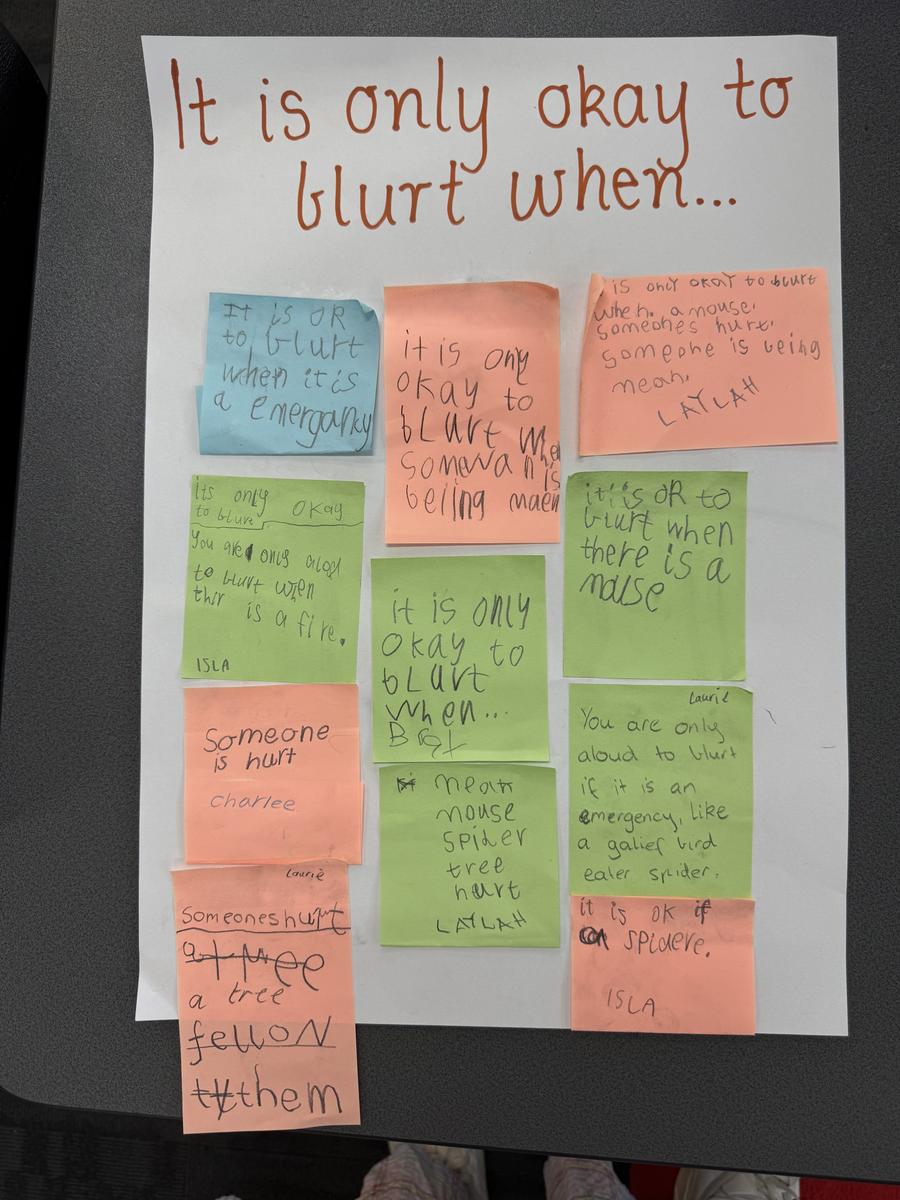 It is only okay to
blurt when...
It is OR
to blurt
when it is
a emergancy
it is only
okay to
blurt whe
somwan is
beijng maen
is only okay to blurt
when. a mouse.
someones hurt.
someone is being
mean.
LAYLAH
its only okay
to blurt
You are only alod
to blurt when
thir is a fire.
ISLA
it is only
okay to
blurt
when...
it is OR to
blurt when
there is a
mouse
Someone
is hurt
charlee
mean
mouse
spider
tree
hurt
LAYLAH
Laurie
You are only
aloud to blurt
if it is an
emergency, like
a galief bird
eater spider.
Laurie
someones hurt
a tree
a tree
fell ON
them
it is OK if
a spidere.
ISLA